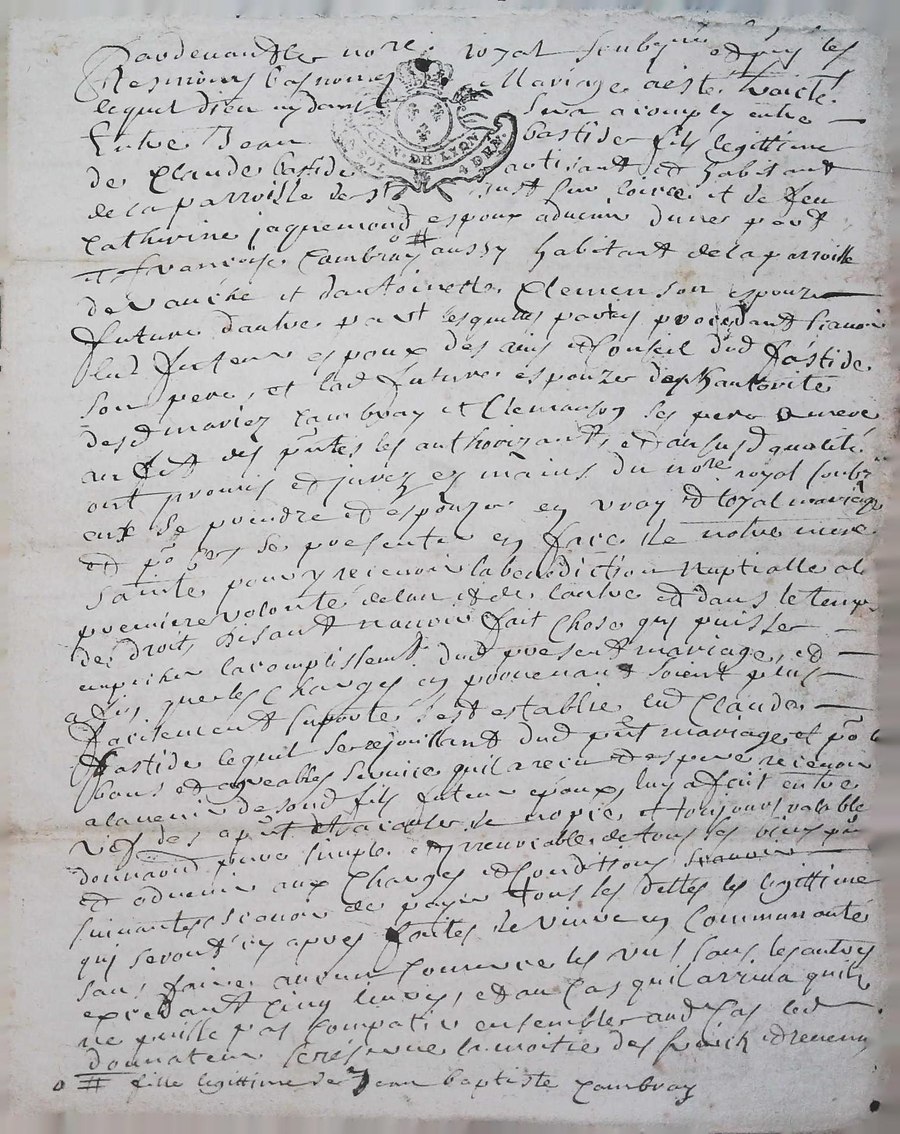 Pardevant le no.re royal soubsigné et pns les
Tesmoins bas nommes Mariage a esté traicté
lequel dieu aydant sera acomply entre
Entre Jean bastide fils legittime
GLN. DE LYON
SOL 4 DEN.
de Claude bastide artisant et habitant
de la parroisse de St just sur loire et de feu
Catherine jaquemond espoux advenir dune part
et françoise Cambray # aussy habitant de la parroisse
de et dantoinette Clemenson espouze
future dautre part lesquelles parties procedant scavoir
led futeur espoux des avis et Conseil dud bastide
son pere, et lad future espouze de lhautorité
desd mariez Cambray et Clemanson ses pere & mere
au fait des pntes les authorizants et ausd qualité
ont promis et jurez ez mains du no.re royal soubz
eux se prendre et espouzer en vray et loyal mariage
et po. se presenter en face de notre mere
sainte pour y recevoir la benediction Nuptialle a la
premiere volonté de lun et de lautre et dans le temps
de droit, disant navoir fait chose quy puisse
empecher lacomplissemt dud present mariage, et
afin que les Charges en provenant soient plus
facilement suporté sest establie led Claude
Bastide lequel se rejouissant dud pnt mariage et po. les
bons et agreables service quil a receu et espere recevoir
a ladvenir de sond fils futeur epoux, luy a fait entre
vifs des a pnt et a valoir et toujours valable
donnaon pure simple et irrevocable de tous ses biens pn
et advenir aux Charges et Conditions
suivantes scavoir de payer tous les dettes les legittime
quy seront cy apres faites de vivre en Communauté
sans faire aucun les uns sans les autres
excedant Cinq livres, et au Cas quil arriva quil
ne puisse pas Compatir ensemble aud Cas led
donnateur se reserve la moitié des fruich et revenu
o # fille legittime de Jean baptiste Cambray